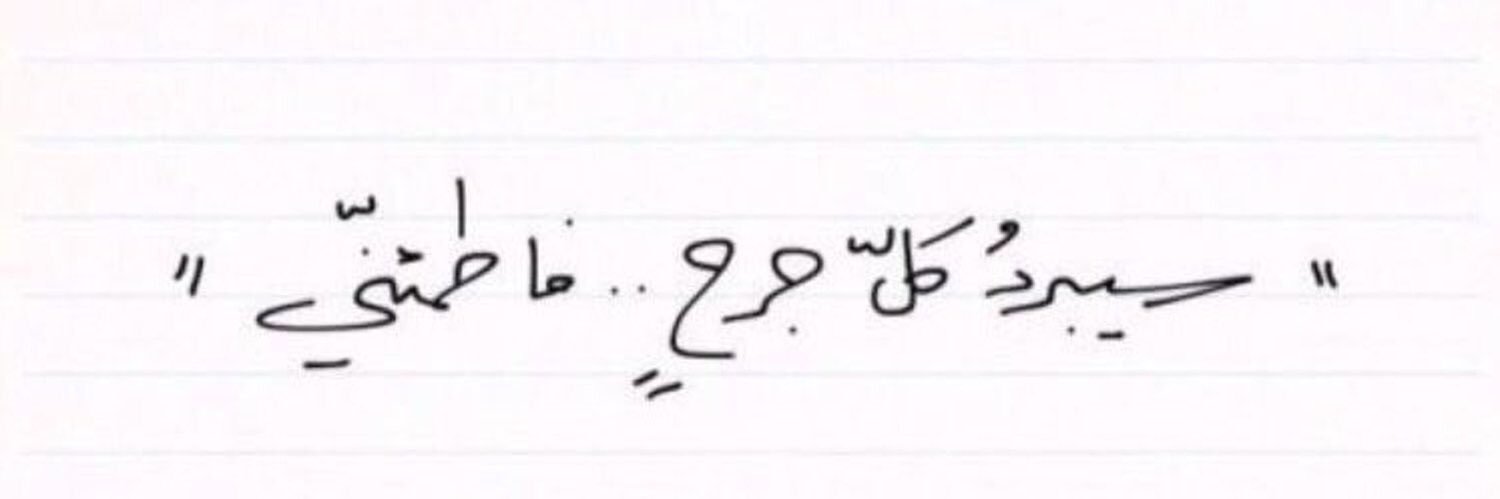 "سيبردُ كلّ جرحٍ .. فاطمئنّي"